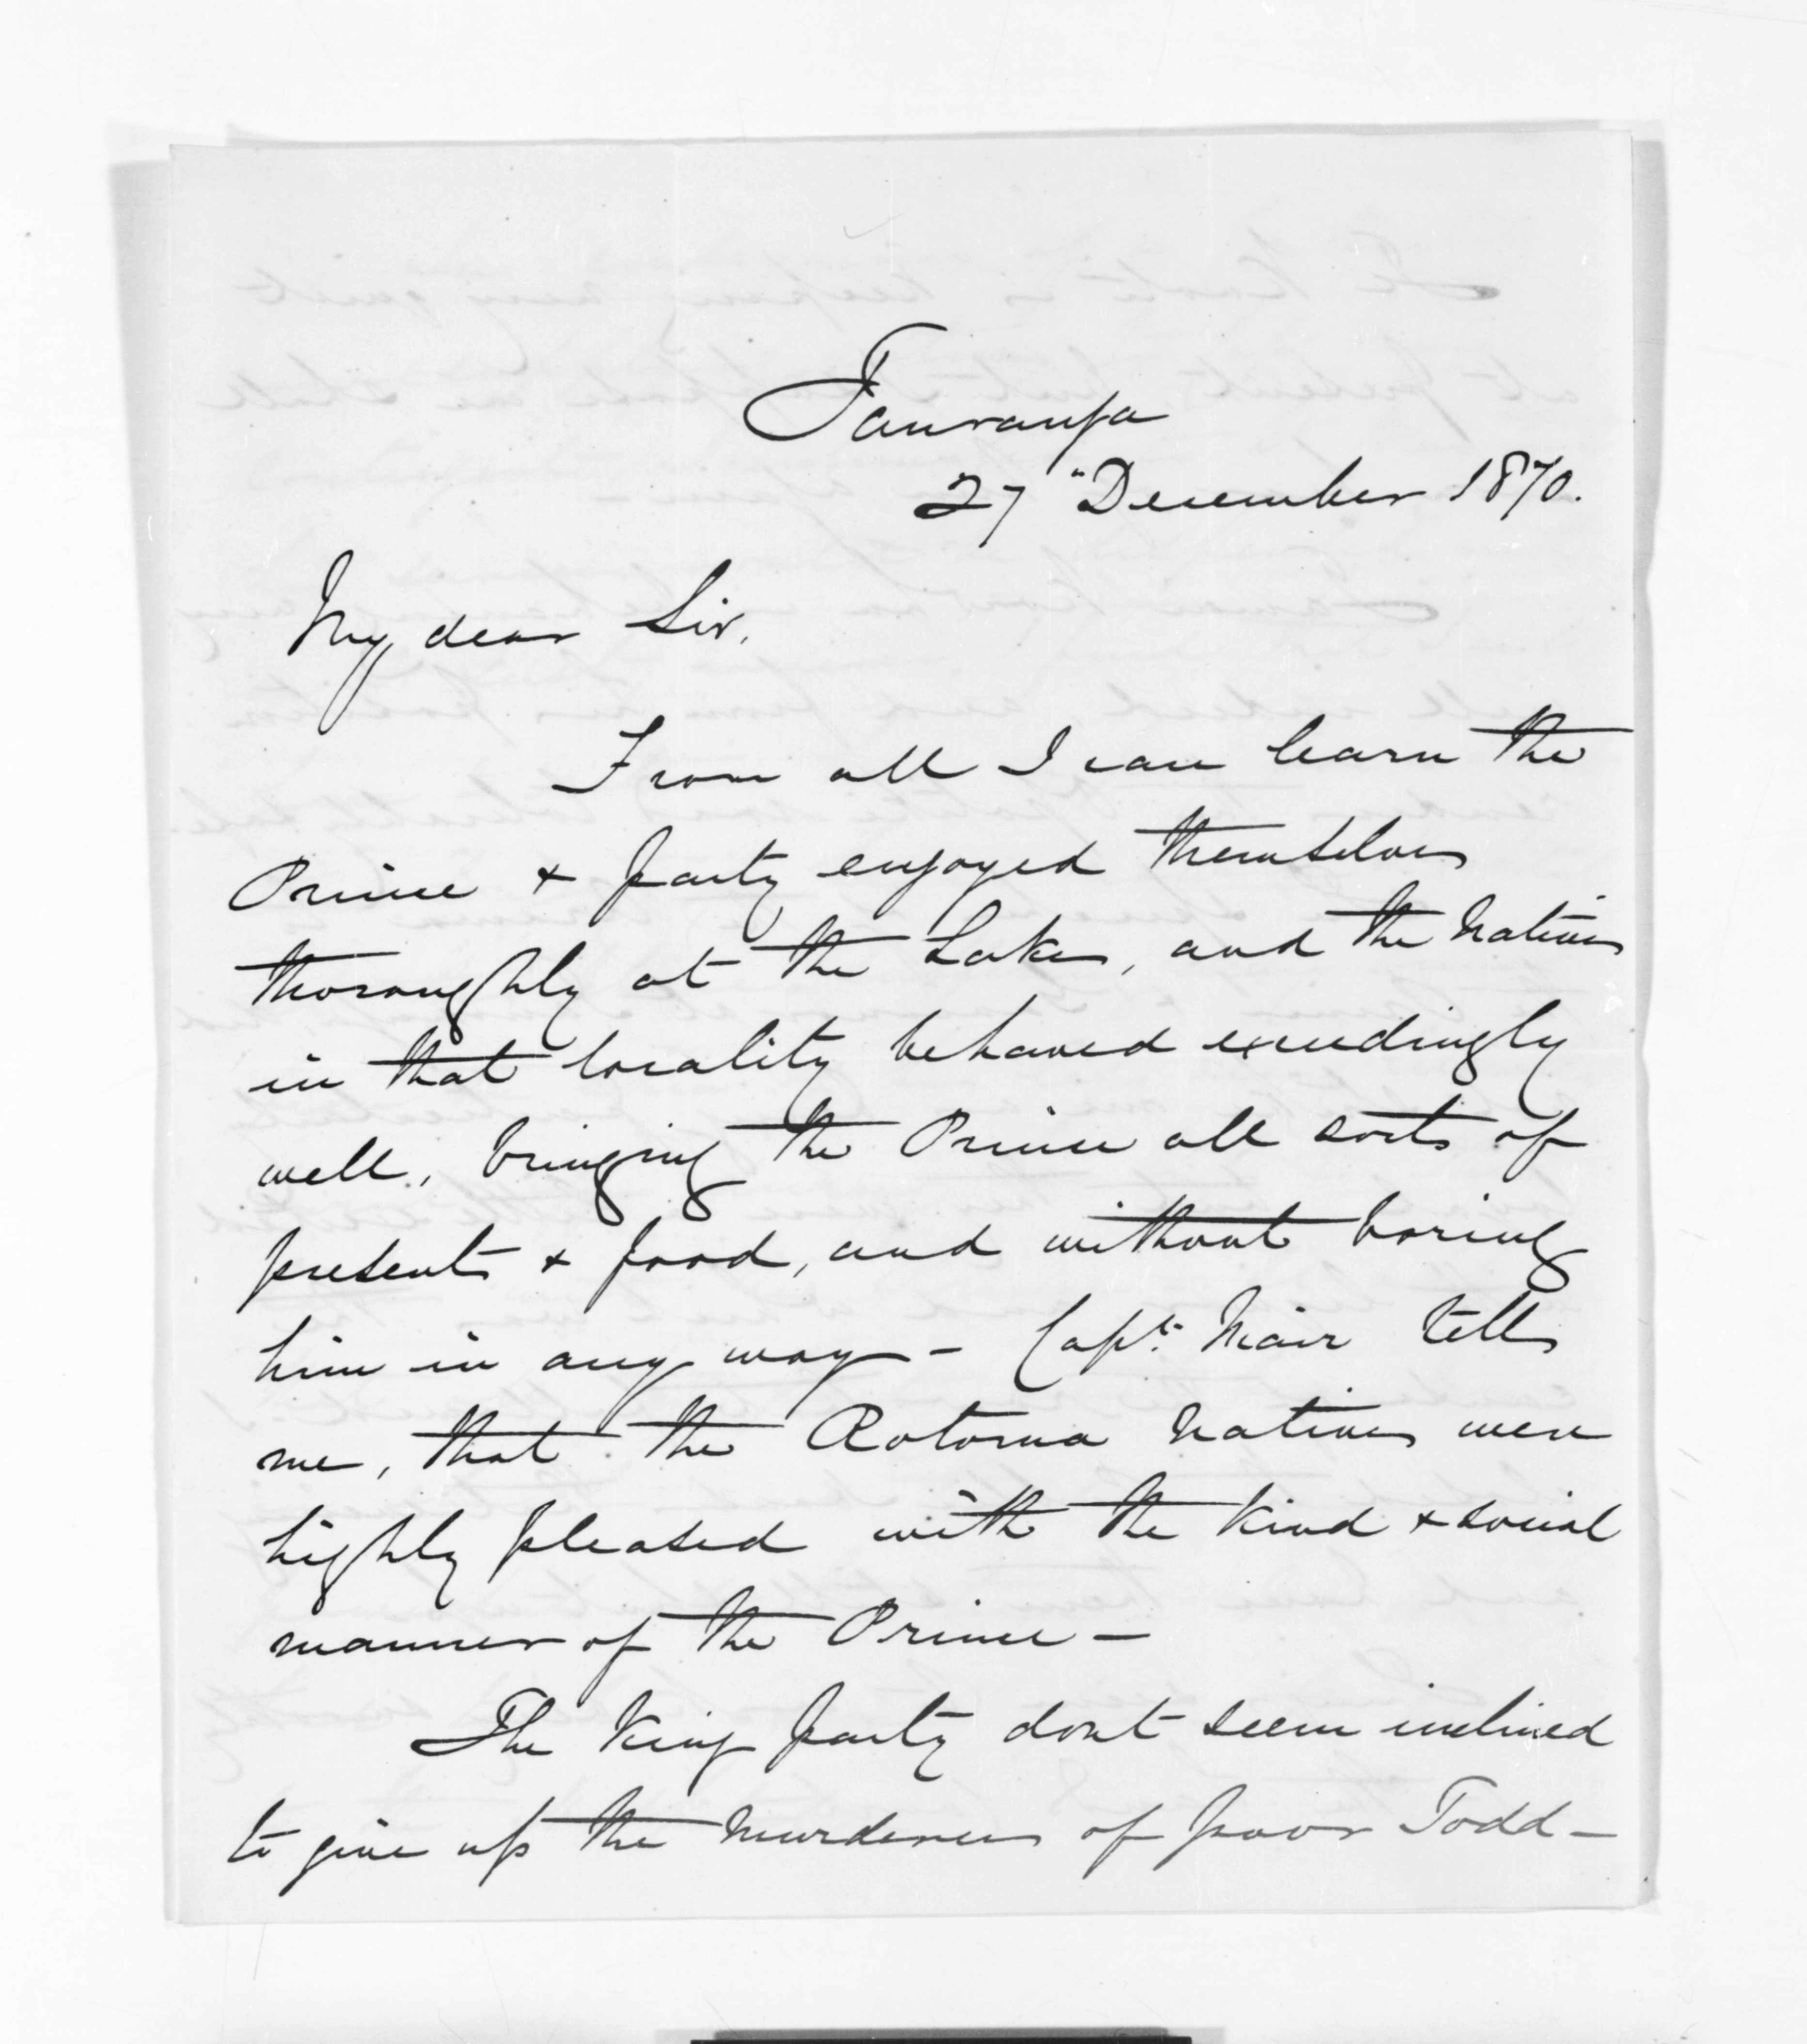 Tauranga
27" December 1870.
My dear Sir.
From all I can learn the
Prince & party enjoyed themselves
thoroughly at the Lakes, and the Natives
in that locality behaved exceedingly
well, bringing the Prince all sorts of
presents & food, and without boring
him in any way - Capt. Mair tells
me, that the Rotorua Natives were
highly pleased with the kind & social
manner of the Prince -
The King party dont seem inclined
to give up the Murderers of poor Todd -